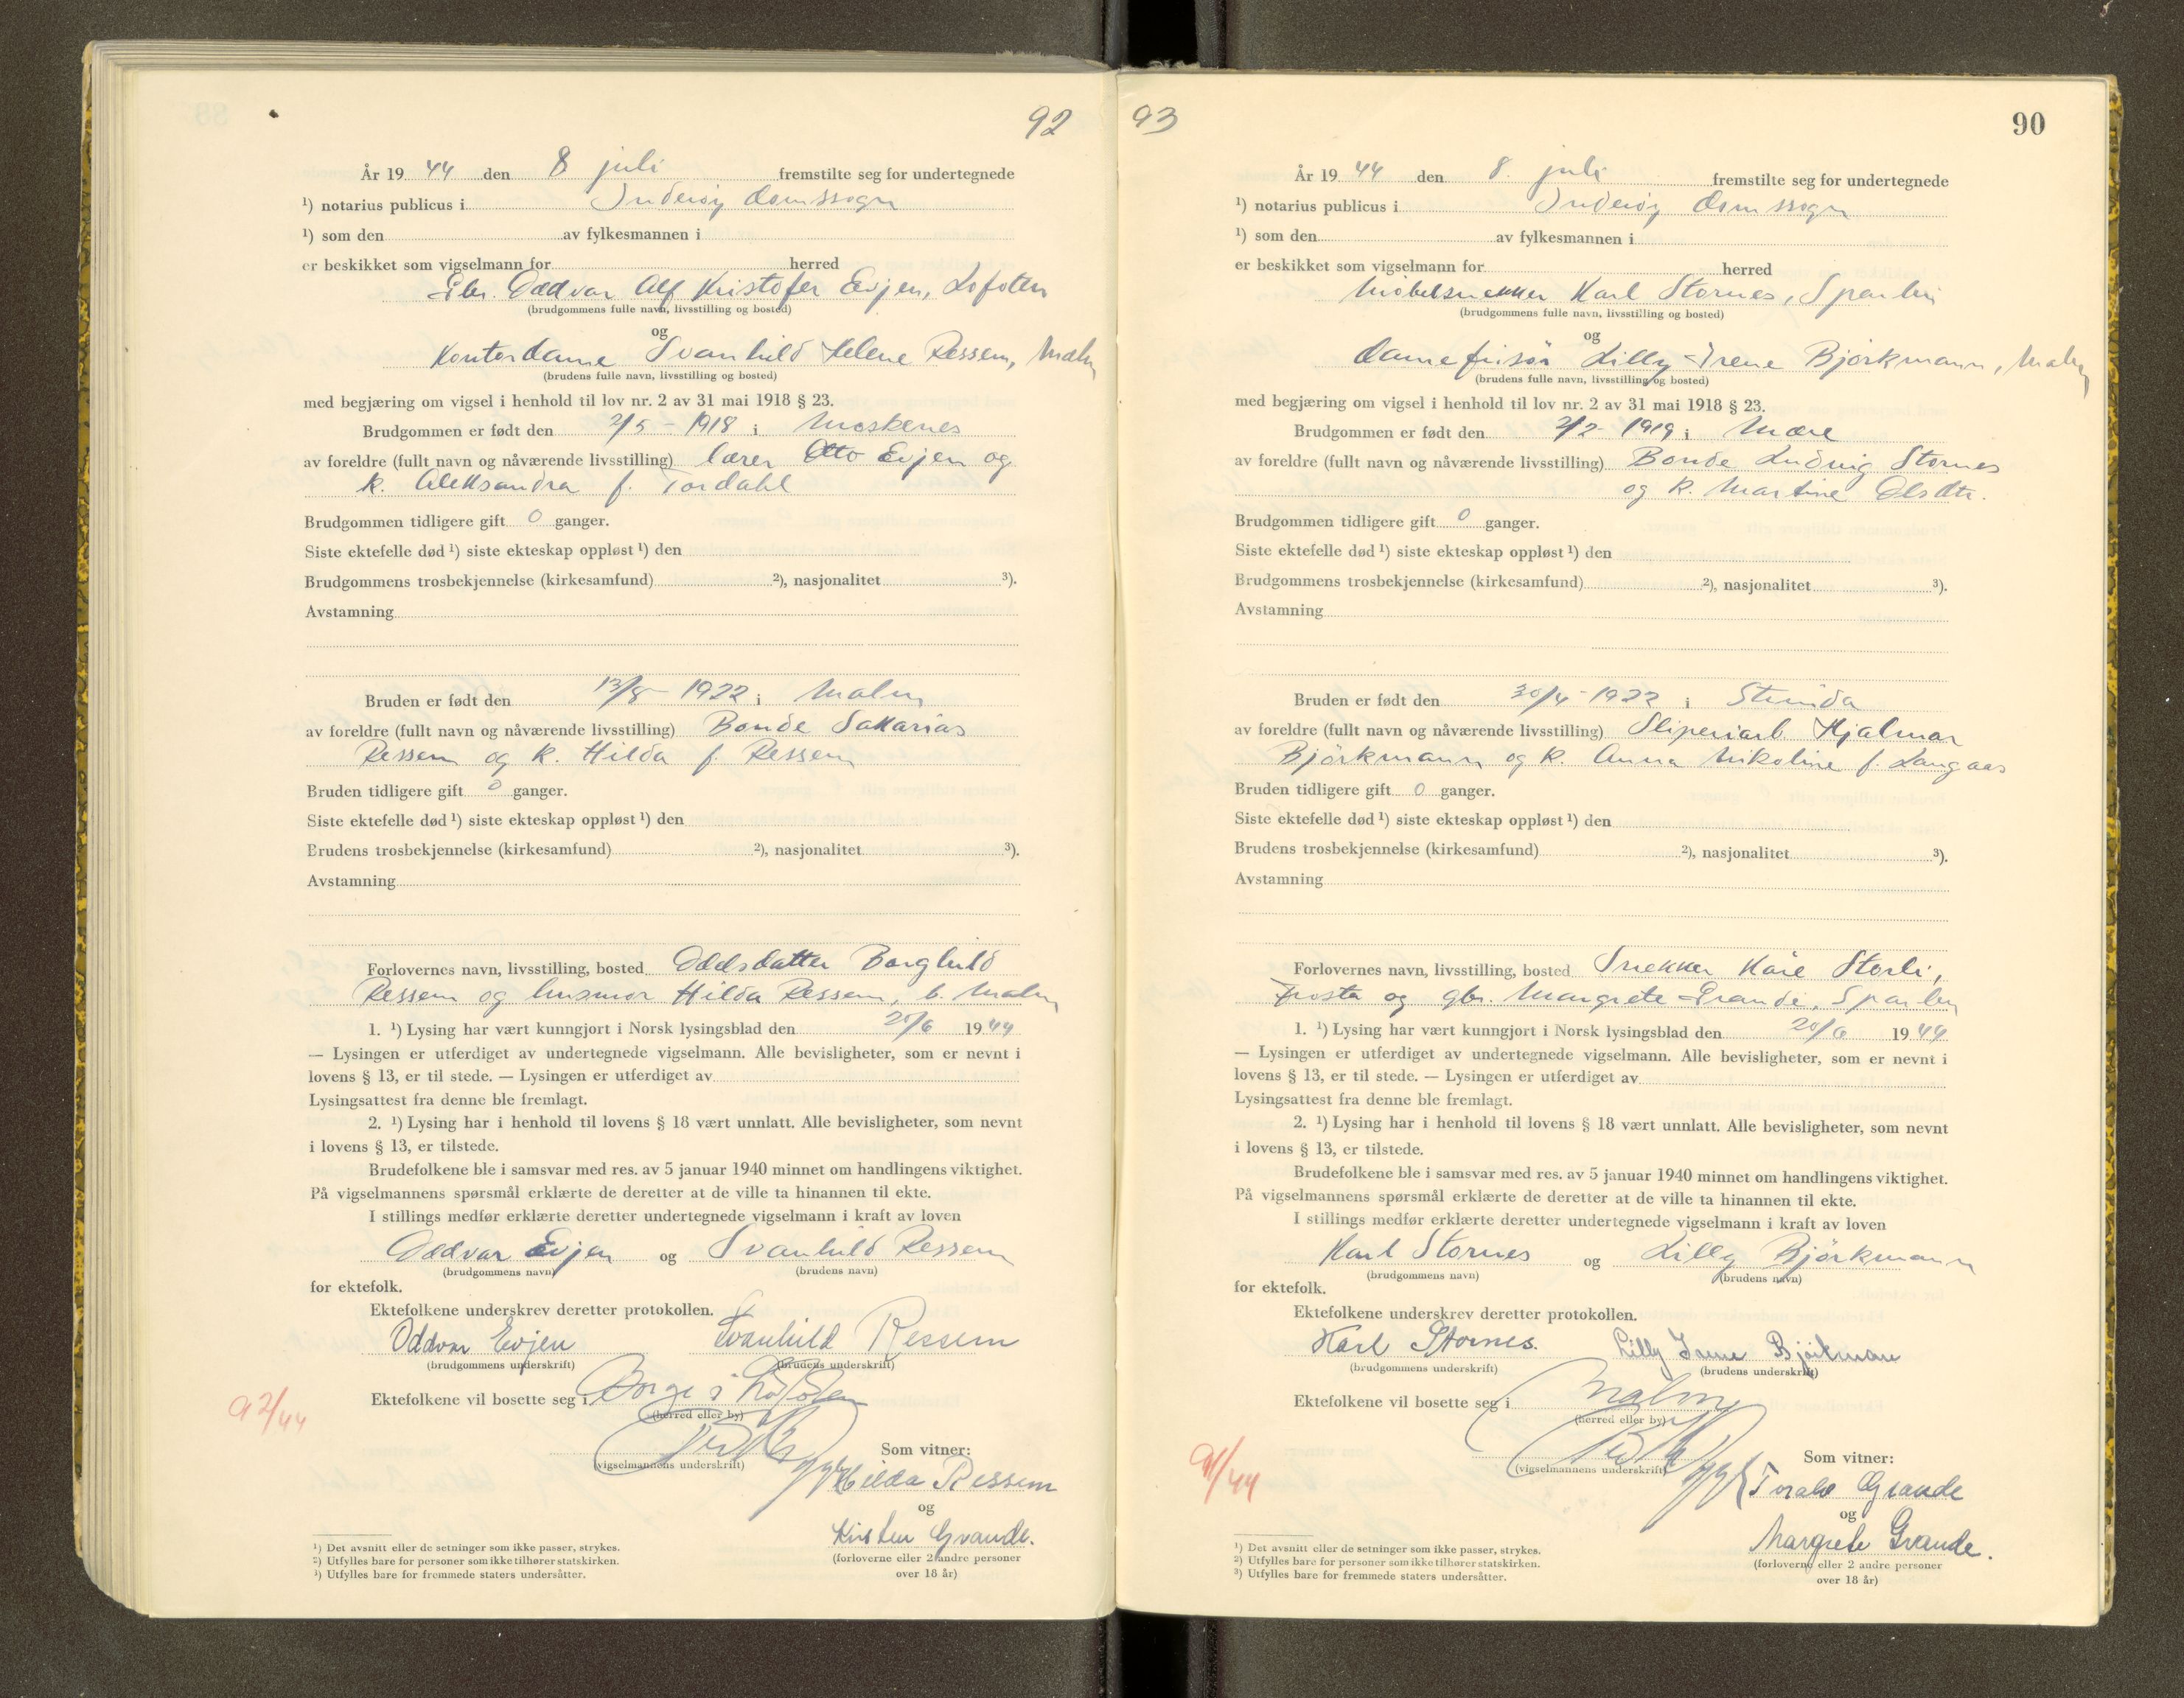 92
År 19 44 den 8 juli fremstilte seg for undertegnede
¹) notarius publicus i Inderøy domssogn
¹) som den av fylkesmannen i
er beskikket som vigselmann for herred
Gbr. Oddvar Alf Kristofer Evjen, Lofoten
(brudgommens fulle navn, livsstilling og bosted)
og
Kontordame Svanhild Helene Ressem, Malm
(brudens fulle navn, livsstilling og bosted)
med begjæring om vigsel i henhold til lov nr. 2 av 31 mai 1918 § 23.
Brudgommen er født den 2/5 - 1918 i Moskenes
av foreldre (fullt navn og nåværende livsstilling) lærer Otto Evjen og
k. Aleksandra f. Tordahl
Brudgommen tidligere gift 0 ganger.
Siste ektefelle død ¹) siste ekteskap oppløst ¹) den
Brudgommens trosbekjennelse (kirkesamfund) ²), nasjonalitet ³).
Avstamning
Bruden er født den 13/8 - 1922 i Malm
av foreldre (fullt navn og nåværende livsstilling) Bonde Sakarias
Ressem og k. Hilda f. Ressem
Bruden tidligere gift 0 ganger.
Siste ektefelle død ¹) siste ekteskap oppløst ¹) den
Brudens trosbekjennelse (kirkesamfund) ²), nasjonalitet ³).
Avstamning
Forlovernes navn, livsstilling, bosted Odelsdatter Borghild
Ressem og husmor Hilda Ressem, b. Malm
1. ¹) Lysing har vært kunngjort i Norsk lysingsblad den 20/6 1944
— Lysingen er utferdiget av undertegnede vigselmann. Alle bevisligheter, som er nevnt i
lovens § 13, er til stede. — Lysingen er utferdiget av
Lysingsattest fra denne ble fremlagt.
2. ¹) Lysing har i henhold til lovens § 18 vært unnlatt. Alle bevisligheter, som nevnt
i lovens § 13, er tilstede.
Brudefolkene ble i samsvar med res. av 5 januar 1940 minnet om handlingens viktighet.
På vigselmannens spørsmål erklærte de deretter at de ville ta hinannen til ekte.
I stillings medfør erklærte deretter undertegnede vigselmann i kraft av loven
Oddvar Evjen og Svanhild Ressem
(brudgommens navn) (brudens navn)
for ektefolk.
Ektefolkene underskrev deretter protokollen.
Oddvar Evjen Svanhild Ressem
(brudgommens underskrift) (brudens underskrift)
Ektefolkene vil bosette seg i Borge i Lofoten
(herred eller by)
92/44
(vigselmannens underskrift)
Som vitner:
Hilda Ressem
og
Kirsten Grande.
(forloverne eller 2 andre personer
over 18 år)
¹) Det avsnitt eller de setninger som ikke passer, strykes.
²) Utfylles bare for personer som ikke tilhører statskirken.
³) Utfylles bare for fremmede staters undersåtter.
93
90
År 19 44 den 8. juli fremstilte seg for undertegnede
¹) notarius publicus i Inderøy domssogn
¹) som den av fylkesmannen i
er beskikket som vigselmann for herred
Møbelsnekker Karl Stornes, Sparbu
(brudgommens fulle navn, livsstilling og bosted)
og
damefrisør Lilly Irene Bjørkmann, Malm
(brudens fulle navn, livsstilling og bosted)
med begjæring om vigsel i henhold til lov nr. 2 av 31 mai 1918 § 23.
Brudgommen er født den 2/2 - 1919 i Mære
av foreldre (fullt navn og nåværende livsstilling) Bonde Ludvig Stornes
og k. Martine Olsdtr.
Brudgommen tidligere gift 0 ganger.
Siste ektefelle død ¹) siste ekteskap oppløst ¹) den
Brudgommens trosbekjennelse (kirkesamfund) ²), nasjonalitet ³).
Avstamning
Bruden er født den 30/4 - 1922 i Strinda
av foreldre (fullt navn og nåværende livsstilling) Sliperiarb. Hjalmar
Bjørkmann og k. Anna Nikoline f. Langaas
Bruden tidligere gift 0 ganger.
Siste ektefelle død ¹) siste ekteskap oppløst ¹) den
Brudens trosbekjennelse (kirkesamfund) ²), nasjonalitet ³).
Avstamning
Forlovernes navn, livsstilling, bosted Snekker Kåre Storli,
Frosta og gbr. Margrete Grande, Sparbu
1. ¹) Lysing har vært kunngjort i Norsk lysingsblad den 20/6 1944
— Lysingen er utferdiget av undertegnede vigselmann. Alle bevisligheter, som er nevnt i
lovens § 13, er til stede. — Lysingen er utferdiget av
Lysingsattest fra denne ble fremlagt.
2. ¹) Lysing har i henhold til lovens § 18 vært unnlatt. Alle bevisligheter, som nevnt
i lovens § 13, er tilstede.
Brudefolkene ble i samsvar med res. av 5 januar 1940 minnet om handlingens viktighet.
På vigselmannens spørsmål erklærte de deretter at de ville ta hinannen til ekte.
I stillings medfør erklærte deretter undertegnede vigselmann i kraft av loven
Karl Stornes og Lilly Bjørkmann
(brudgommens navn) (brudens navn)
for ektefolk.
Ektefolkene underskrev deretter protokollen.
Karl Stornes. Lilly Irene Bjørkmann
(brudgommens underskrift) (brudens underskrift)
Ektefolkene vil bosette seg i Malm
(herred eller by)
91/44
(vigselmannens underskrift)
Som vitner:
Torald Grande
og
Margrete Grande.
(forloverne eller 2 andre personer
over 18 år)
¹) Det avsnitt eller de setninger som ikke passer, strykes.
²) Utfylles bare for personer som ikke tilhører statskirken.
³) Utfylles bare for fremmede staters undersåtter.